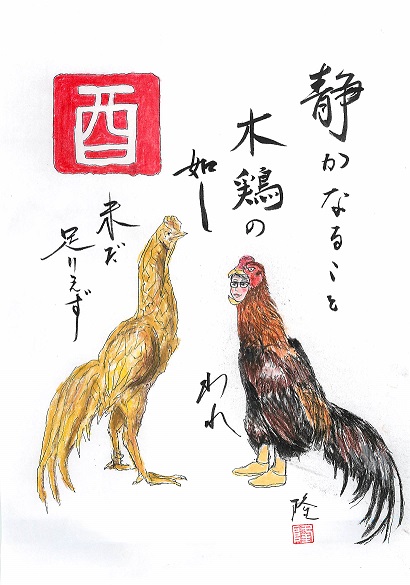 静かなること
木鶏の
如し
われ
未だ
足りえず
酉
隆
隆